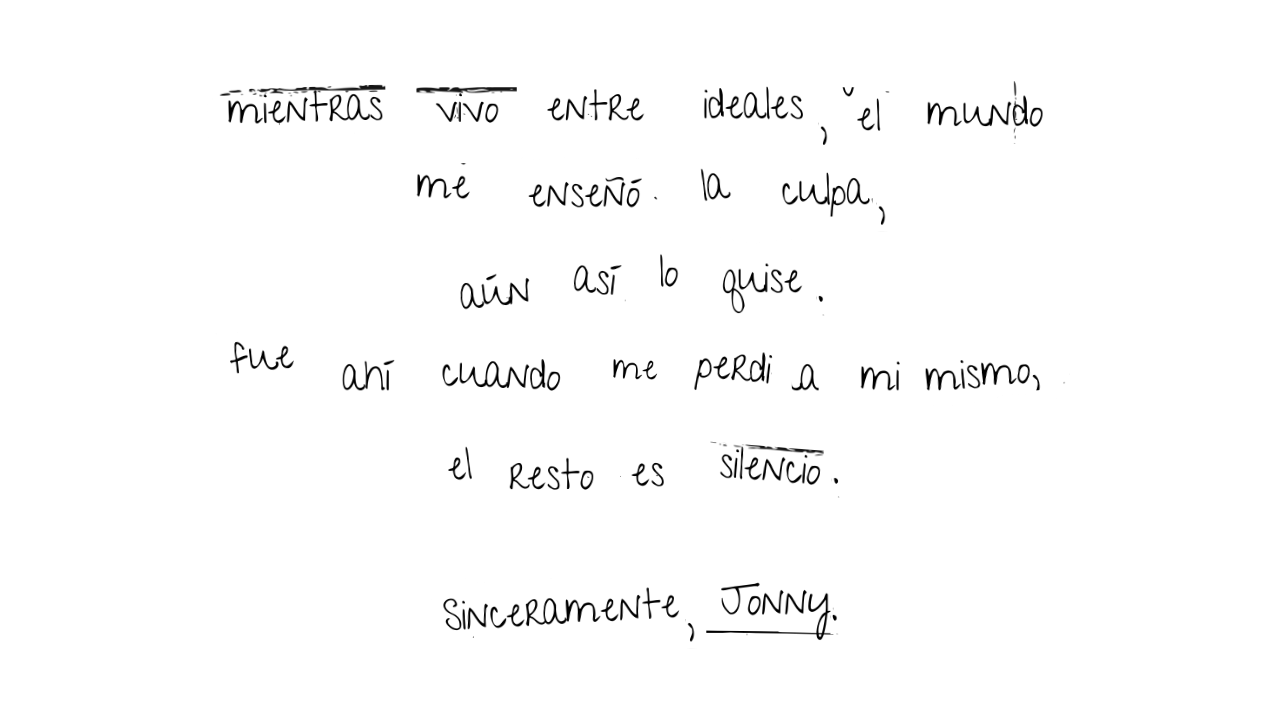 mientras vivo entre ideales, el mundo
me enseñó la culpa,
aún así lo quise.
fue ahí cuando me perdi a mi mismo,
el resto es silencio.
sinceramente, Jonny.